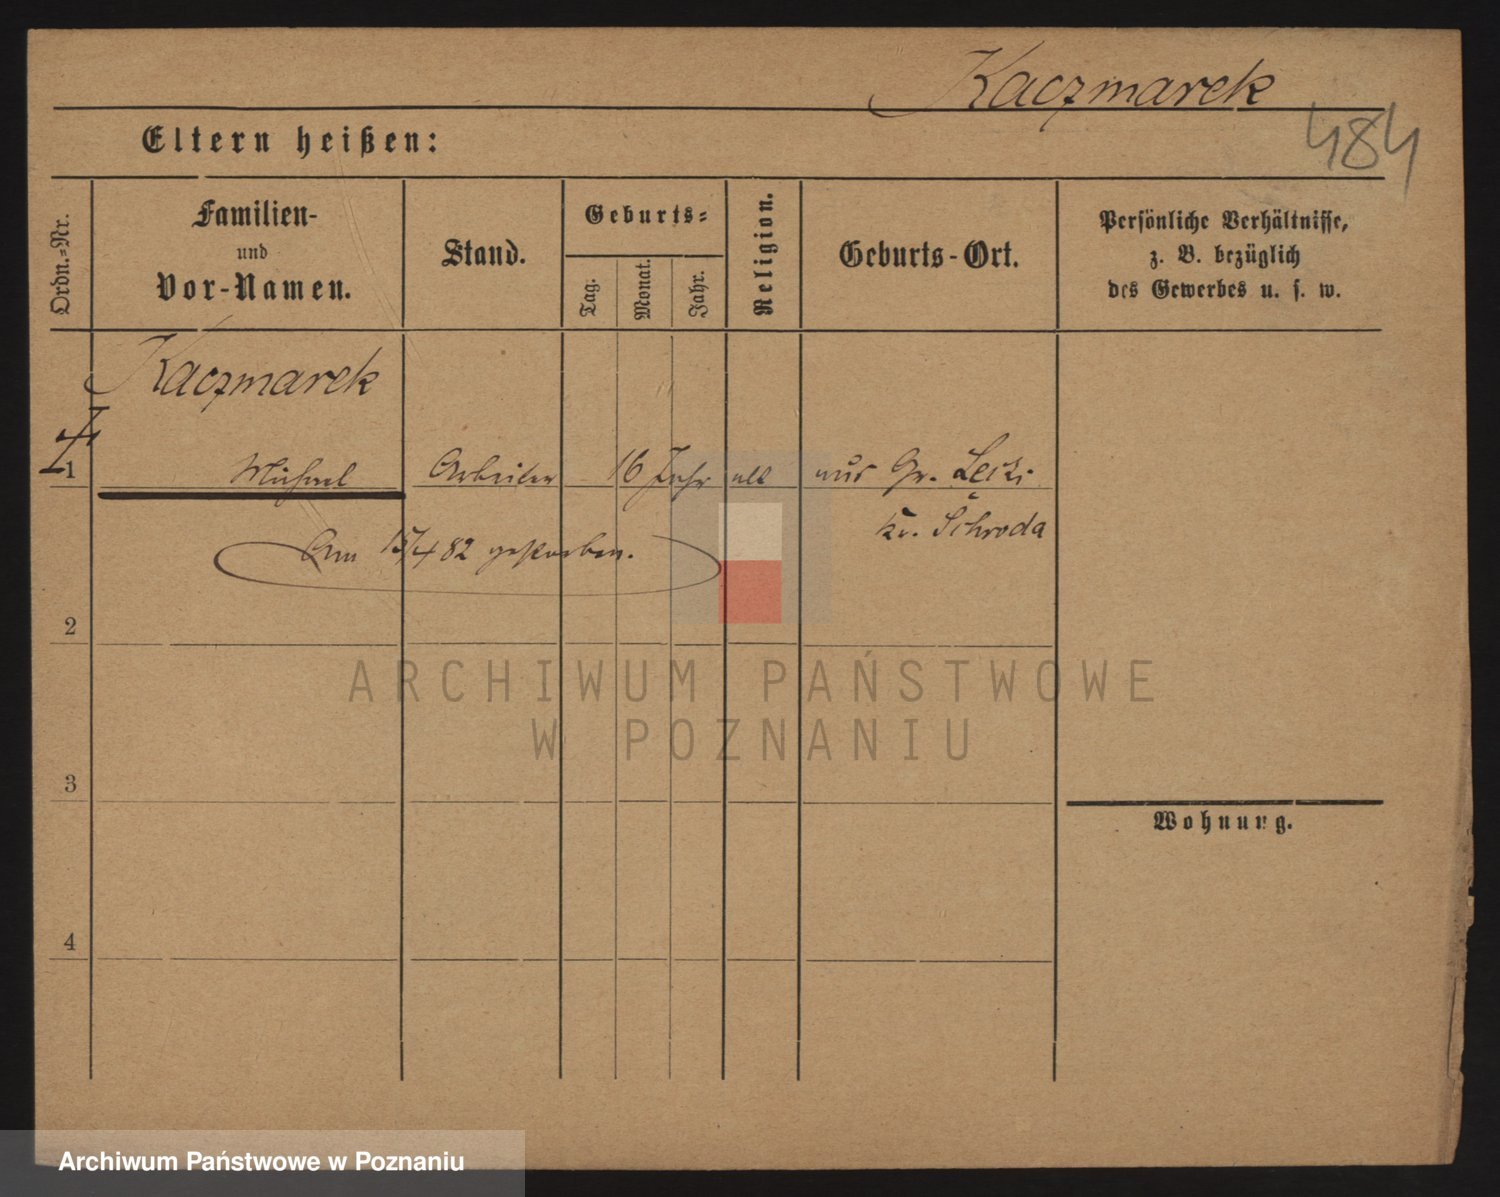 Kaczmarek
484
Eltern heißen:
Ordn.-Nr.
Familien-
und
Vor-Namen.
Stand.
Geburts-
Tag.
Monat.
Jahr.
Religion.
Geburts-Ort.
Persönliche Verhältnisse,
z. B. bezüglich
des Gewerbes u. s. w.
Kaczmarek
1 Michael Arbeiter 16 Jahr alt aus Gr.
Kr. Schroda
Am 15/4 82 gestorben.
2
ARCHIWUM PAŃSTWOWE
W POZNANIU
3
Wohnung.
4
Archiwum Państwowe w Poznaniu